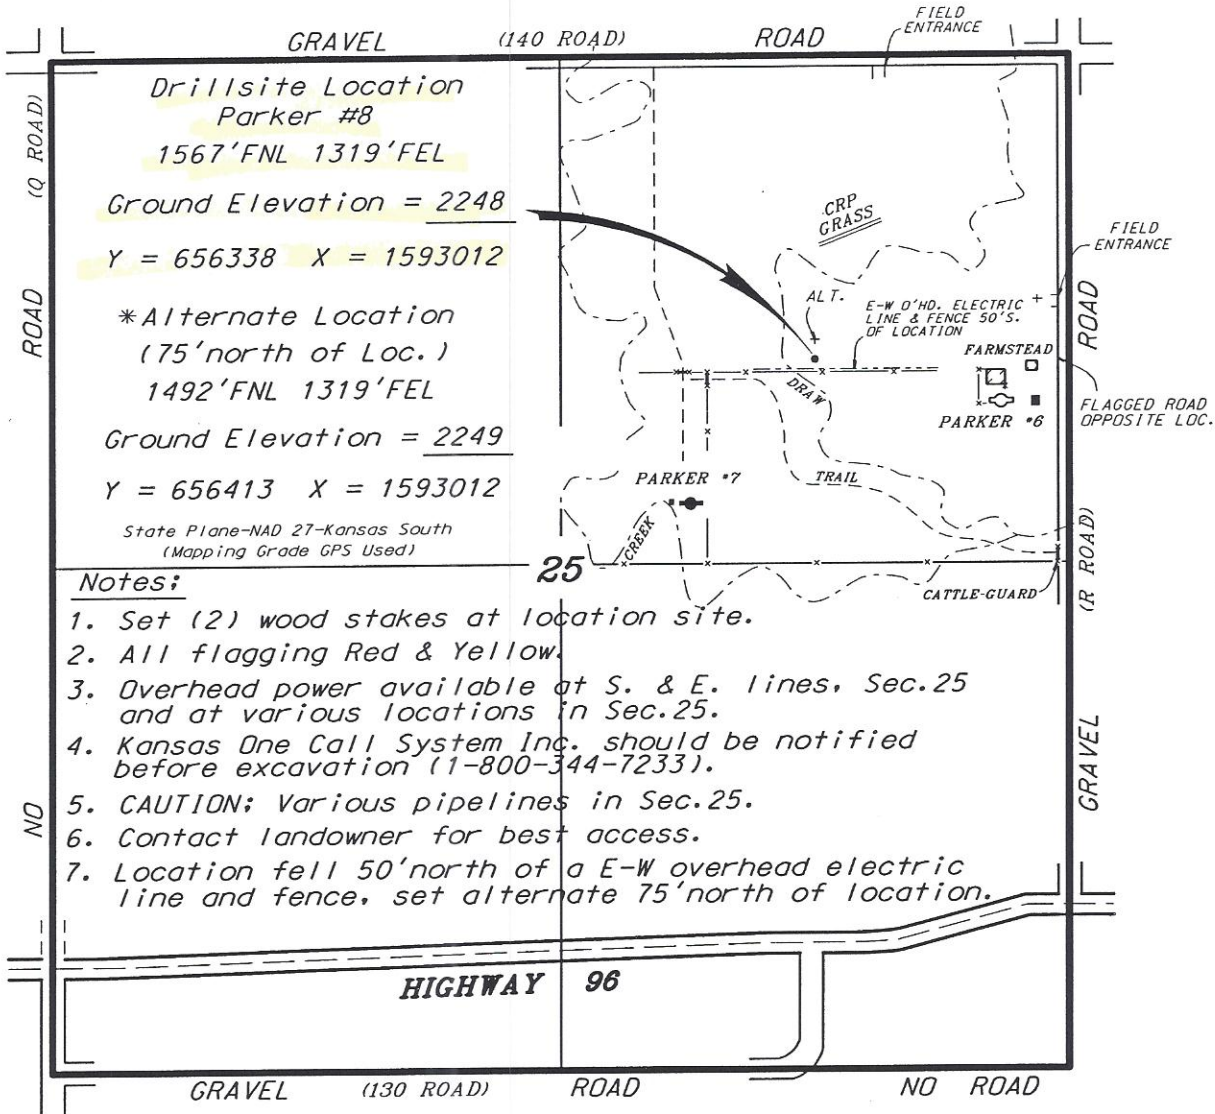 GRAVEL (140 ROAD) ROAD
FIELD
ENTRANCE
(Q ROAD)
ROAD
NO
Drillsite Location
Parker #8
1567'FNL 1319'FEL
Ground Elevation = 2248
Y = 656338 X = 1593012
*Alternate Location
(75'north of Loc.)
1492'FNL 1319'FEL
Ground Elevation = 2249
Y = 656413 X = 1593012
State Plane-NAD 27-Kansas South
(Mapping Grade GPS Used)
CRP
GRASS
FIELD
ENTRANCE
ALT.
E-W O'HD. ELECTRIC
LINE & FENCE 50'S.
OF LOCATION
ROAD
FARMSTEAD
DRAW
PARKER #6
FLAGGED ROAD
OPPOSITE LOC.
PARKER #7
TRAIL
CREEK
25
CATTLE-GUARD
(R ROAD)
GRAVEL
Notes:
1. Set (2) wood stakes at location site.
2. All flagging Red & Yellow.
3. Overhead power available at S. & E. lines, Sec.25
and at various locations in Sec.25.
4. Kansas One Call System Inc. should be notified
before excavation (1-800-344-7233).
5. CAUTION: Various pipelines in Sec.25.
6. Contact landowner for best access.
7. Location fell 50'north of a E-W overhead electric
line and fence, set alternate 75'north of location.
HIGHWAY 96
GRAVEL (130 ROAD) ROAD NO ROAD